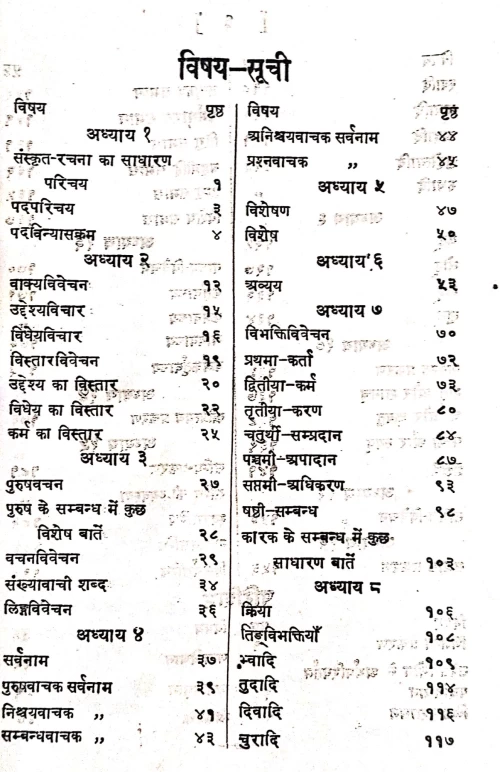 विषय—सूची
विषय पृष्ठ
अध्याय १
संस्कृत-रचना का साधारण
परिचय १
पदपरिचय ३
पदविन्यासक्रम ४
अध्याय २
वाक्यविवेचन १२
उद्देश्यविचार १५
विधेयविचार १६
विस्तारविवेचन १९
उद्देश्य का विस्तार २०
विधेय का विस्तार २२
कर्म का विस्तार २५
अध्याय ३
पुरुषवचन २७
पुरुष के सम्बन्ध में कुछ
विशेष बातें २८
वचनविवेचन २९
संख्यावाची शब्द ३४
लिङ्गविवेचन ३६
अध्याय ४
सर्वनाम ३७
पुरुषवाचक सर्वनाम ३९
निश्चयवाचक ,, ४१
सम्बन्धवाचक ,, ४३
विषय पृष्ठ
अनिश्चयवाचक सर्वनाम ४४
प्रश्नवाचक ,, ४५
अध्याय ५
विशेषण ४७
विशेष ५०
अध्याय ६
अव्यय ५३
अध्याय ७
विभक्तिविवेचन ७०
प्रथमा—कर्ता ७२
द्वितीया—कर्म ७३
तृतीया—करण ८०
चतुर्थी—सम्प्रदान ८४
पञ्चमी—अपादान ८७
सप्तमी—अधिकरण ९३
षष्ठी—सम्बन्ध ९८
कारक के सम्बन्ध में कुछ
साधारण बातें १०३
अध्याय ८
क्रिया १०६
तिङ्विभक्तियाँ १०८
भ्वादि १०९
तुदादि ११४
दिवादि ११६
चुरादि ११७